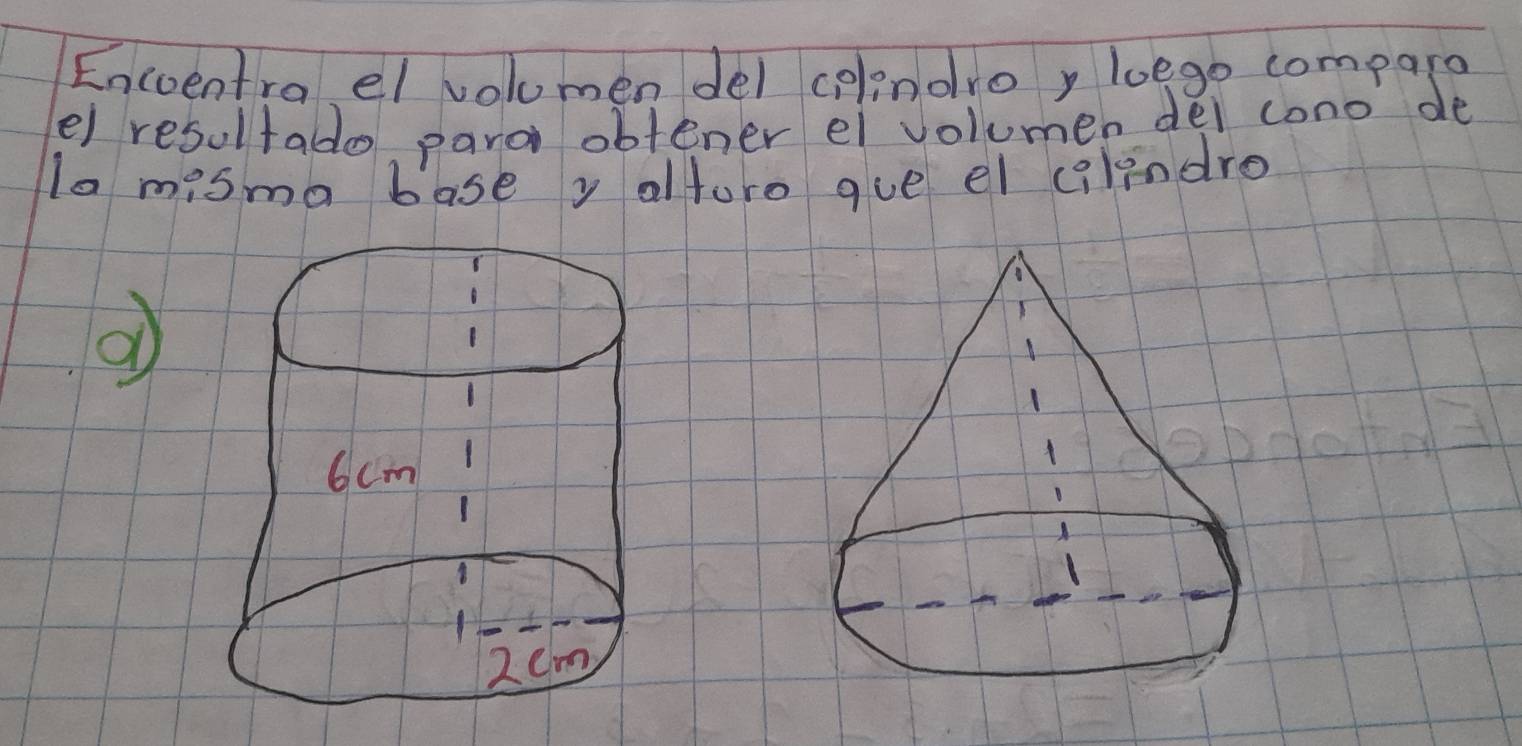 Encuentra el volumen del cilindro y luego compara
el resultado para obtener el volumen del cono de
la misma base y altura que el cilindro
a)
6cm
2cm
Entonces